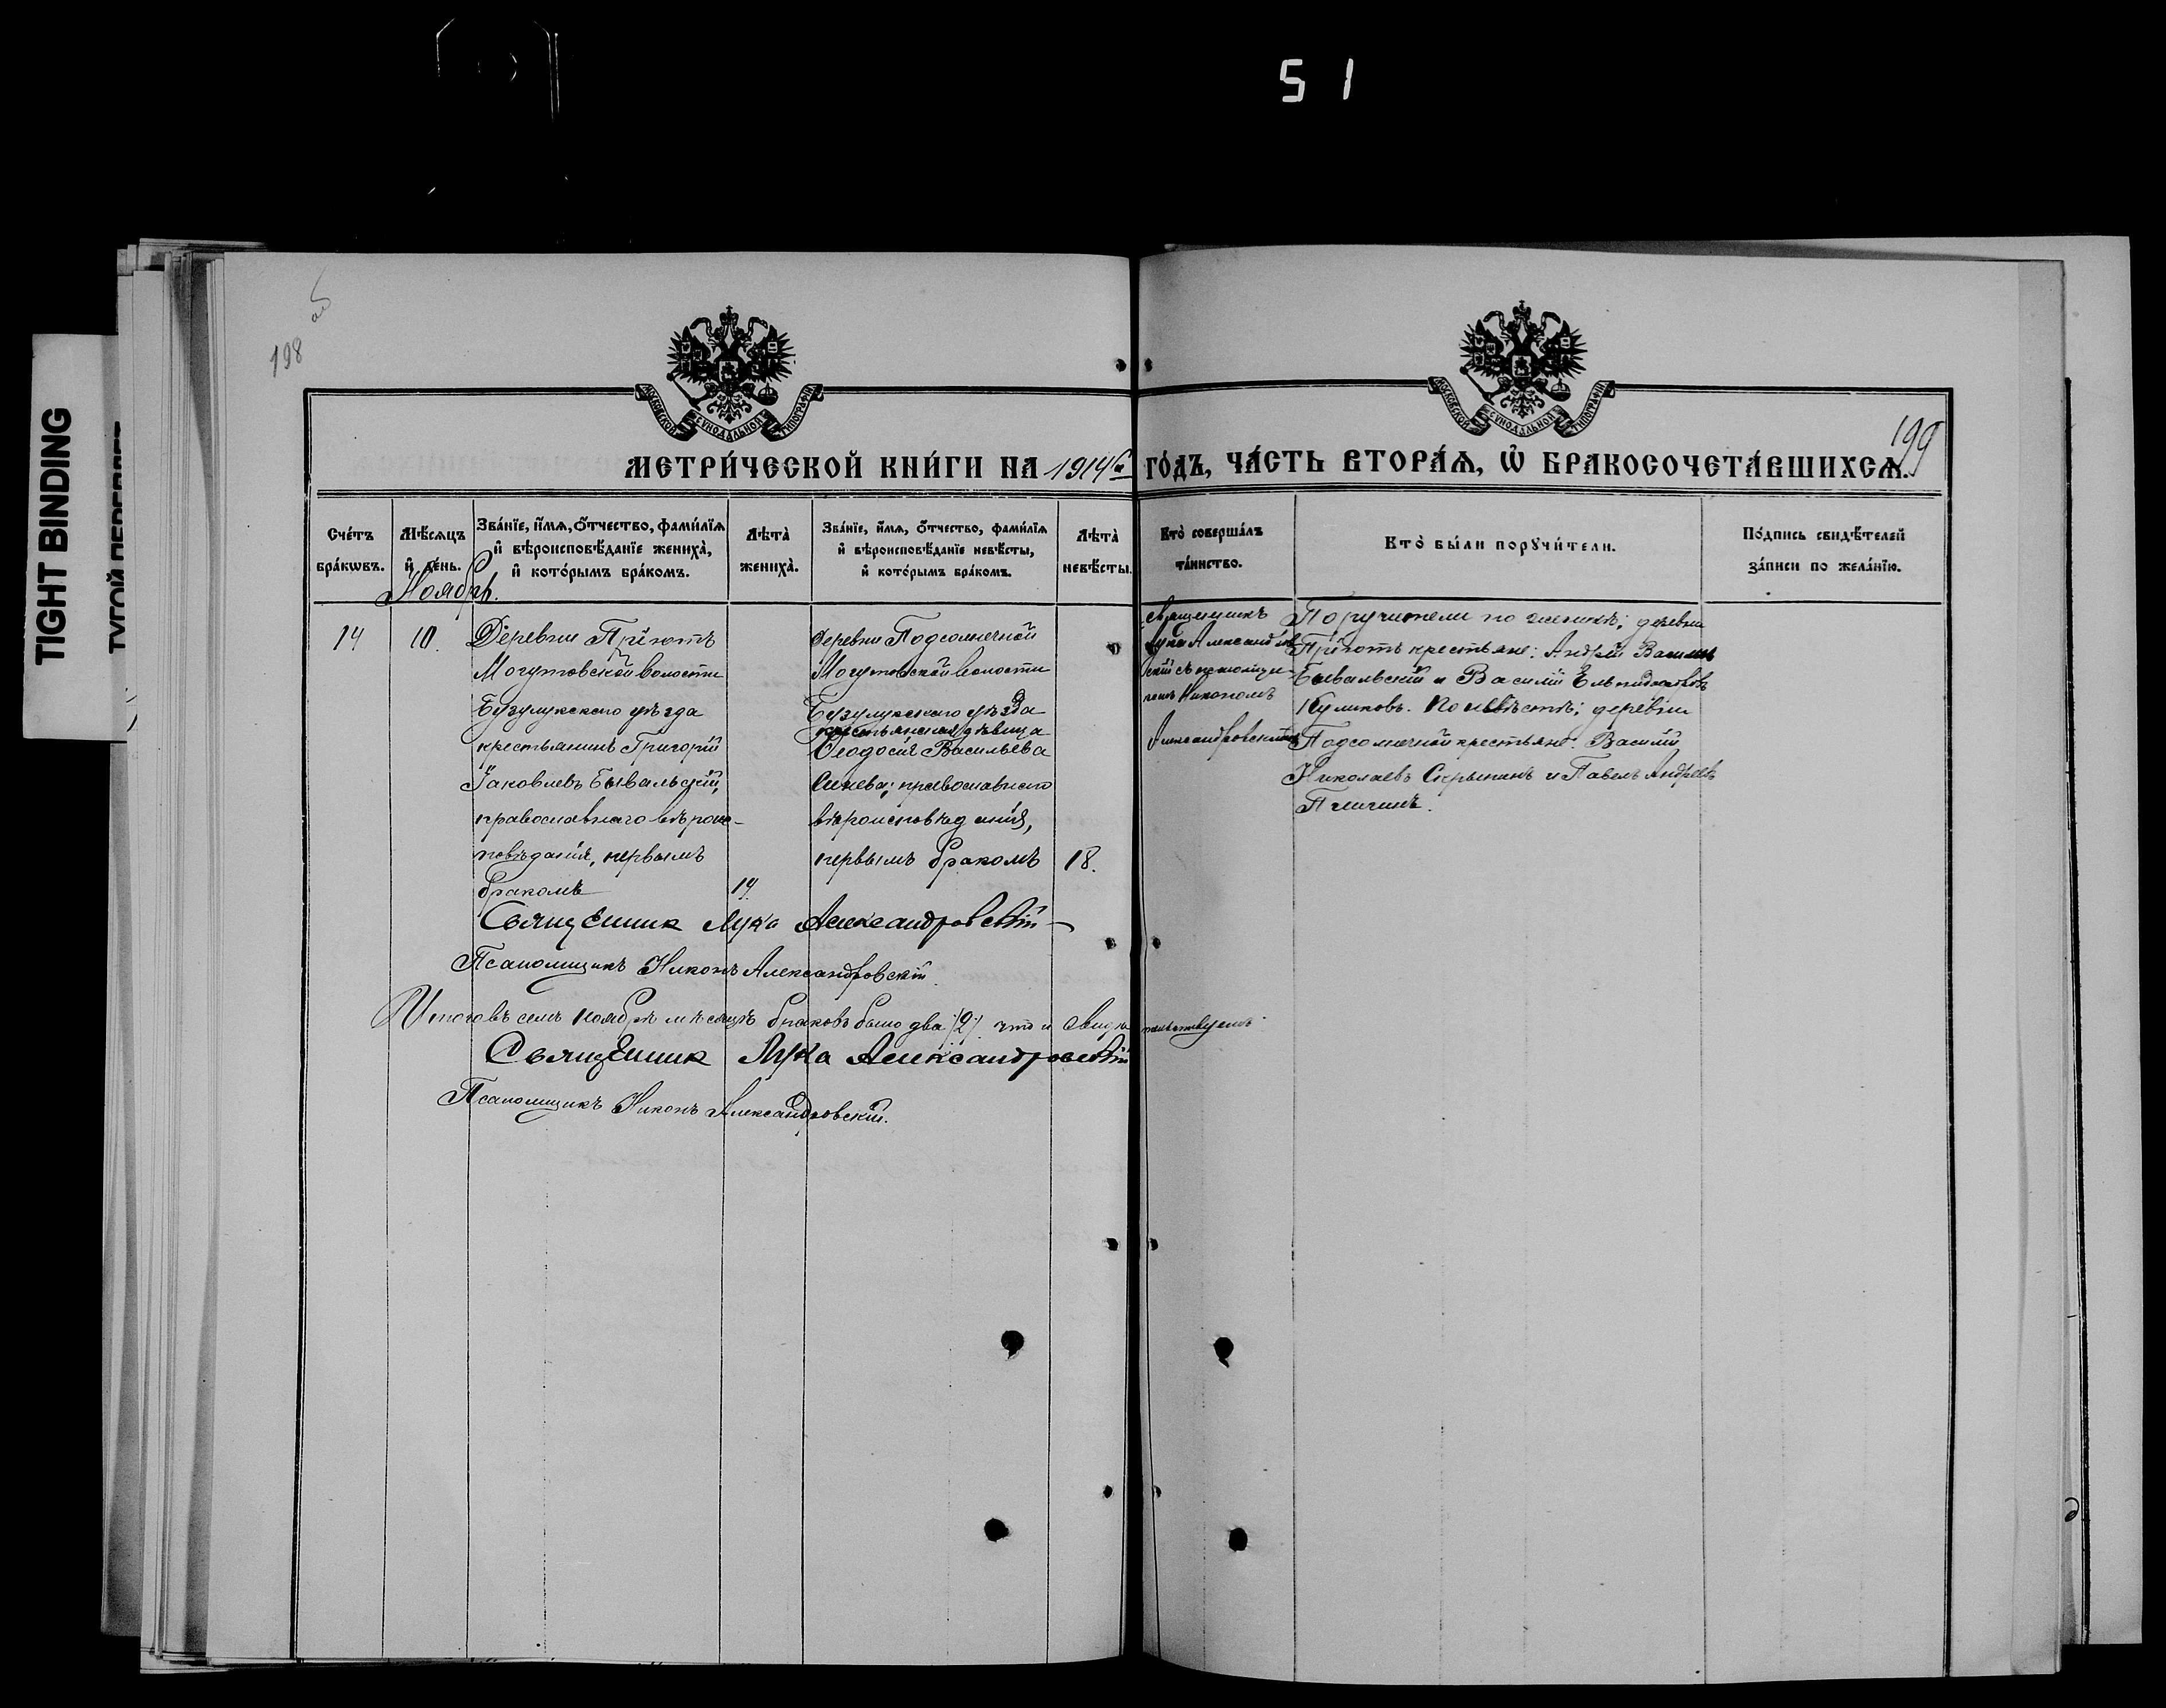 51
TIGHT BINDING
об
198
199
МОСКОВСКОЙ СѴНОДАЛЬНОЙ ТИПОГРАФІИ
МОСКОВСКОЙ СѴНОДАЛЬНОЙ ТИПОГРАФІИ
МЕТРИ́ЧЕСКОЙ КНИ́ГИ НА 1914й ГО́ДЪ, ЧА́СТЬ ВТОРА́Ѧ, Ѽ БРАКОСОЧЕТА́ВШИХСѦ.
Сче́тъ
бра́кѡвъ.
Мѣ́сѧцъ
и҆ де́нь.
Зва́нїе, и҆́мѧ, ѻ҆́тчество, фами́лїѧ
и҆ вѣроисповѣ́данїе жениха̀,
и҆ кото́рымъ бра́комъ.
Лѣта̀
жениха̀.
Зва́нїе, и҆́мѧ, ѻ҆́тчество, фами́лїѧ
и҆ вѣроисповѣ́данїе невѣ́сты,
и҆ кото́рымъ бра́комъ.
Лѣта̀
невѣ́сты.
Кто̀ соверша́лъ
та́инство.
Кто̀ бы́ли порꙋчи́тели.
По́дпись свидѣ́телей
за́писи по жела́нїю.
Ноябрь.
14
10.
Деревни Пріютъ
Могутовской волости
Бузулукскаго уѣзда
крестьянинъ Григорій
Іаковлевъ Бывальскій,
православнаго вѣроис-
повѣданія, первымъ
бракомъ
19.
деревни Подсолнечной
Могутовской волости
Бузулукскаго уѣзда
крестьянская дѣвица
Ѳеодосія Васильева
православнаго
вѣроисповѣданія,
первымъ бракомъ
18.
Священникъ
Лука Александров-
скій съ псаломщи-
комъ Никономъ
Александровскимъ
Поручители по женихѣ: деревни
Пріютъ крестьяне: Андрей Васильевъ
Бывальскій и Василій Елпидифоровъ
Куликовъ. По невѣстѣ: деревни
Подсолнечной крестьяне: Василій
Николаевъ Скрыпинъ и Павелъ Андреевъ
Священник Лука Александровскій
Псаломщикъ Никонъ Александровскій.
Итого въ семъ ноябрѣ мѣсяцѣ браковъ было два /2/ что и свидѣтельствуемъ:
Священник Лука Александровскій
Псаломщикъ Никонъ Александровскій.